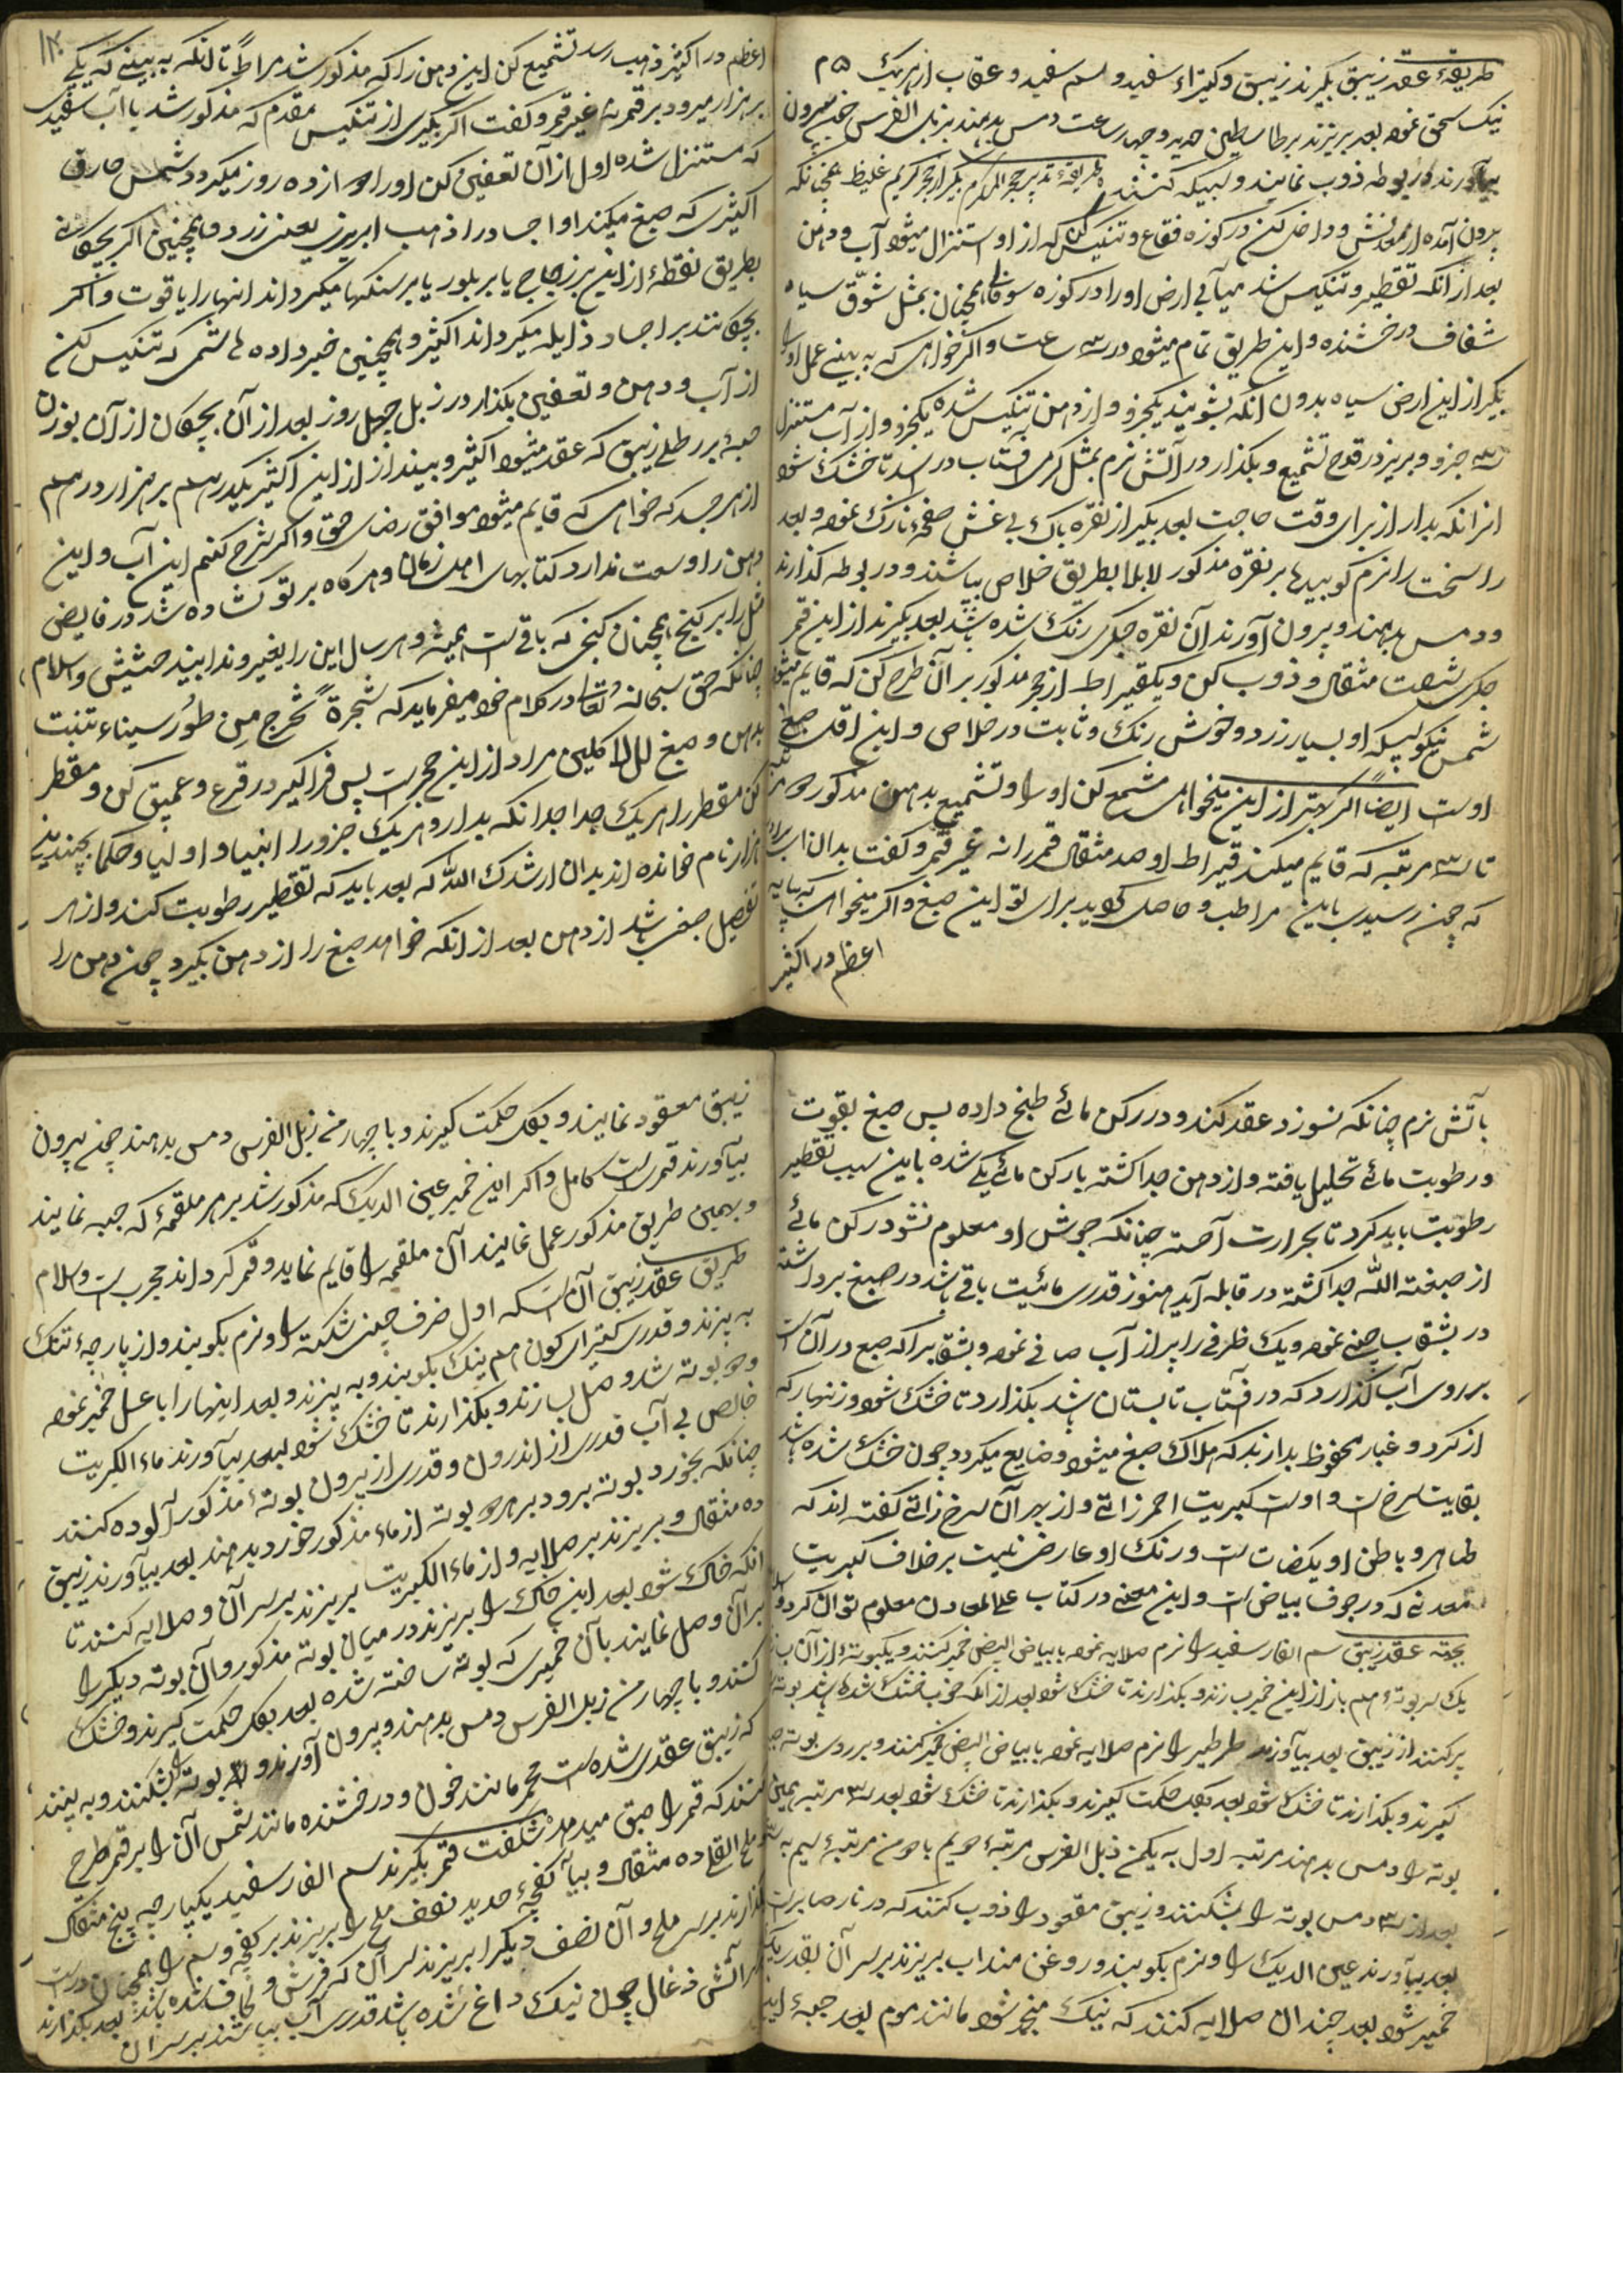 طریقهٔ عقد زیبق بگیرند زیبق و کثیراء سفید و سم سفید و عقاب از هر یک ۵ م
نیک سحق نموده بعد بریزند بر طاسطین حدید و چهار ساعت دمس بدهند بزبل الفرس چون بیرون
بیآورند در بوطه ذوب نمایند و سبیکه کنند طریقهٔ تدبیر حجر المکرم بگیر از حجر کریم غلیظ همچنانکه
بیرون آمده از معدنش و داخل کن در کوزه فقاع و تنکیس کن که از او استنزال میشود آب و دهن
بعد از آنکه تقطیر و تنکیس شد میآبی ارض او را در کوزه سوفانی همچنان بمثل شوّق سیاه
شفاف درخشنده و این طریق تمام میشود در سه ساعت و اگر خواهی که به بینی عمل او را
بگیر از این ارض سیاه بدون آنکه بشویند یکجزو و از دهن به تنکیس شده یکجزو و از آب مستنزل
سه جزو و بریز در قدح تشمیع و بگذار در آتش نرم بمثل گرمی آفتاب در اسد تا خشک شود
انرا نگه بدار از برای وقت حاجت بعد بگیر از نقره پاک بی غش صفحهٔ نازک نموده و بعد
را سخت را نرم کوبید ها بر نقره مذکور لابلا بطریق خلاص بپاشند و در بوطه گذارند
و دمس بدهند و بیرون آورند آن نقره جگری رنگ شده باشد بعد بگیرند از این قمر
جگری شصت مثقال و ذوب کن و یکقیراط از حجر مذکور بر آن طرح کن که قایم میشود
شمس نیکو لیکه او بسیار زرد و خوش رنگ و ثابت در خلاص و این اقل صبغ
اوست ایضاً اگر بهتر از این میخواهی مشمع کن او را و تشمیع بدهن مذکوره
تا سه مرتبه که قایم میکند قیراط او صد مثقال قمر را نه غیر قمر و گفت بدان
که چون رسیدی باین مراطب و حاصل گوید برای تو این صبغ و اگر میخواهی که بپایه
اعظم در اکثیر
اعظم در اکثیر ذهب رسد تشمیع کن این دهن را که مذکور شد مراطاً تا آنکه به بینی که یکی
بر هزار میرود بر قمر نه غیر قمر و گفت اگر بگیری از تنکیس مقدم که مذکور شد با آب سفیدی
که مستنزل شده اول از آن تعفین کن او را دوازده روز میگردد شمس حارق
اکثیری که صبغ میکند او اجساد را ذهب ابریزی یعنی زرد و همچنین اگر بچکانی
بطریق نقطهٔ از این بر زجاج یا بر بلور یا بر سنگها میگرداند انها را یاقوت و اگر
بچکانند بر اجساد ذایله میگرداند اکثیر و همچنین خبر داده هاشمی که تنکیس کن
از آب و دهن و تعفین بگذار در زبل چهل روز بعد از آن بچکان از آن بوزن
حبهٔ بر رطلی زیبق که عقد میشود اکثیر و بینداز از این اکثیر یکدرهم بر هزار درهم
از هر جسد که خواهی که قایم میشود موافق رضای حق و اگر شرح کنم این آب و این
دهن را وسعت ندارد کتابهای اهل زمان و هرگاه بر تو گشاده شد در فایض
مثل را بر گنج همچنان گنجی که باقی است همیشه و هر سال این را یغیر و ندا بیند حشیش و السلام
چنانکه حق سبحانه و تعالی در کلام خود میفرماید که شجرة تخرج من طور سیناء تنبت
بدهن و صبغ للآکلین مراد از این حجر است پس فراگیر در قرع و عمیق کن و مقطر
کن مقطر را هر یک جدا جدا نگه بدار و هر یک جزو را انبیا و اولیا و حکما بچندین
هزار نام خوانده اند بدان ارشدک الله که بعد باید که تقطیر رطوبت کند و از هر
تفصیل صبغی باشد از دهن بعد از آنکه خواهد صبغ را از دهن بگیرد چون دهن را
بآتش نرم چنانکه نسوزد عقد کند و در رکن مائی طبخ داده پس صبغ بقوت
و رطوبت مائی تحلیل یافته و از دهن جدا گشته با رکن مائی یکی شده باین سبب تقطیر
رطوبت باید کرد تا بحرارت آهسته چنانکه جوش او معلوم نشود رکن مائی
از صبغته الله جدا گشته در قابله آید هنوز قدری مائیت باقی باشد در صبغ برداشته
در بشقاب چینی نموده و یک ظرفی را پر از آب صافی نموده و بشقاب را که صبغ در آن است
بر روی آب گذارد که در آفتاب تابستان باشد بگذارد تا خشک شود و زنهار که
از گرد و غبار محفوظ بدارند که هلاک صبغ میشود و ضایع میگردد چون خشک شده باشد
بغایت سرخ است و اوست کبریت احمر ذاتی و از بهر آن سرخ ذاتی گفته اند که
ظاهر و باطن او یکصفات است و رنگ او عارضی نیست بر خلاف کبریت
معدنی که در جوف بیاض است و این معنی در کتاب علل المعادن معلوم توان کرد
بجهة عقد زیبق سم الفار سفید را نرم صلایه نموده با بیاض البیض خمیر کنند و یکبوتهٔ از آن
یک سر بوتهٔ هم باز از این خمیر سازند و بگذارند تا خشک شود بعد از آنکه خوب خشک شده باشد بوته
پر کنند از زیبق بعد بیآورند طرطیر را نرم صلایه نموده با بیاض البیض خمیر کنند و بر روی بوته
گیرند و بگذارند تا خشک شود بعد بگل حکمت گیرند و بگذارند تا خشک شود بعد سه مرتبه همین
بوته را دمس بدهند مرتبه اول به یکمن زبل الفرس مرتبهٔ دویم با دو من مرتبهٔ سیم به سه
بعد از سه دمس بوته را بشکنند و زیبق معقود را ذوب کنند که در نار صابر است
بعد بیآورند عین الدیک را و نرم بکوبند و روغن منداب بریزند بر سر آن بقدر
خمیر شود بعد چندان صلایه کنند که نیک منخمر شود مانند موم بعد جبهٔ این
زیبق معقود نمایند و بگل حکمت گیرند و با چهار من زبل الفرس دمس بدهند چون بیرون
بیآورند قمریست کامل و اگر این خمیر عین الدیک که مذکور شد بر هر ملقمهٔ که جبه نمایند
و بهمین طریق مذکور عمل نمایند آن ملقمه را قایم نماید و قمر گرداند مجرب است والسلام
طریق عقد زیبق آن است که اول ظرف چینی شکسته را و نرم بکوبند و از پارچهٔ تنک
به بیزند و قدری کتیرای کون هم نیک بکوبند و به بیزند و بعد اینها را با عسل خمیر نموده
و دو بوته شد و وصل بسازند و بگذارند تا خشک شود بعد بیآورند ماء الکبریت
خالص بی آب قدری از اندرون و قدری از بیرون بوتهٔ مذکور آلوده کنند
چنانکه بخورد بوته برود بر هر دو بوته از ماء مذکور خورد بدهند بعد بیآورند زیبق
ده مثقال و بریزند بر صلایه و از ماء الکبریت بریزند بر سر آن و صلایه کنند تا
آنکه خاک شود بعد این خاک را بریزند در میان بوته مذکور و آن بوته دیگر را
بر آن وصل نمایند بآن خمیری که بوته ساخته شده بعد بگل حکمت گیرند و خشک
کنند و با چهار من زبل الفرس دمس بدهند و بیرون آورند و بوته را بشکنند و به بینند
که زیبق عقدی شده است محمر مانند خون و درخشنده مانند شمس آن را بر قمر طرح
کنند که قمر را صبق میدهد شگفت قمر بگیرند سم الفار سفید یکپارچه پنج مثقال
ملح القلع ده مثقال و بیآ کفچهٔ حدید نصف ملح را بریزند بر کفچه و سم را همچنان درست
گذارند بر سر ملح و آن نصف دیگر را بریزند سر آن که فرش و لحاف شده باشد بعد بگذارند
بر آتش ذغال چون نیک داغ شده باشد قدری آب بپاشند بر سر آن